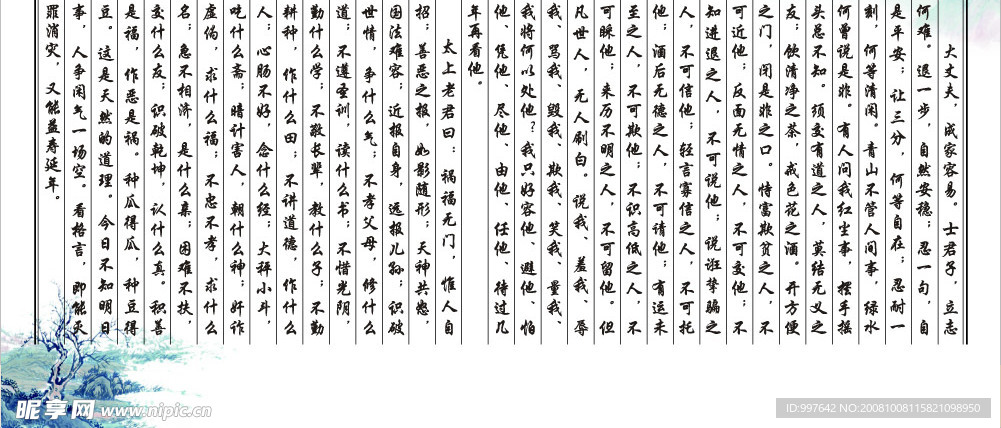 大丈夫，成家容易。士君子，立志
何难。退一步，自然安稳；忍一句，自
是平安；让三分，何等自在；忍耐一
刻，何等清闲。青山不管人间事，绿水
何曾说是非。有人问我红尘事，摆手摇
头总不知。须交有道之人，莫结无义之
友；饮清净之茶，戒色花之酒。开方便
之门，闭是非之口。恃富欺贫之人，不
可近他；反面无情之人，不可交他；不
知进退之人，不可说他；说诳挚骗之
人，不可信他；轻言寡信之人，不可托
他；酒后无德之人，不可请他；有运未
至之人，不可欺他；不识高低之人，不
可睬他；来历不明之人，不可留他。但
凡世人，无人刷白。说我、羞我、辱
我、骂我、毁我、欺我、笑我、量我、
我将何以处他？我只好容他、避他、怕
他、凭他、尽他、由他、任他、待过几
年再看他。
太上老君曰：祸福无门，惟人自
招；善恶之报，如影随形；天神共怒，
国法难容；近报自身，远报儿孙；识破
世情，争什么气；不孝父母，修什么
道；不遵圣训，读什么书；不惜光阴，
勤什么学；不敬长辈，教什么子；不勤
耕种，作什么田；不讲道德，作什么
人；心肠不好，念什么经；大秤小斗，
吃什么斋；暗计害人，朝什么神；奸诈
虚伪，求什么福；不忠不孝，求什么
名；急不相济，是什么亲；困难不扶，
交什么友；识破乾坤，认什么真。积善
是福，作恶是祸。种瓜得瓜，种豆得
豆。这是天然的道理。今日不知明日
事，人争闲气一场空。看格言，即能灭
罪消灾，又能益寿延年。
昵享网 www.nipic.cn
ID:997642 NO:20081008115821098950